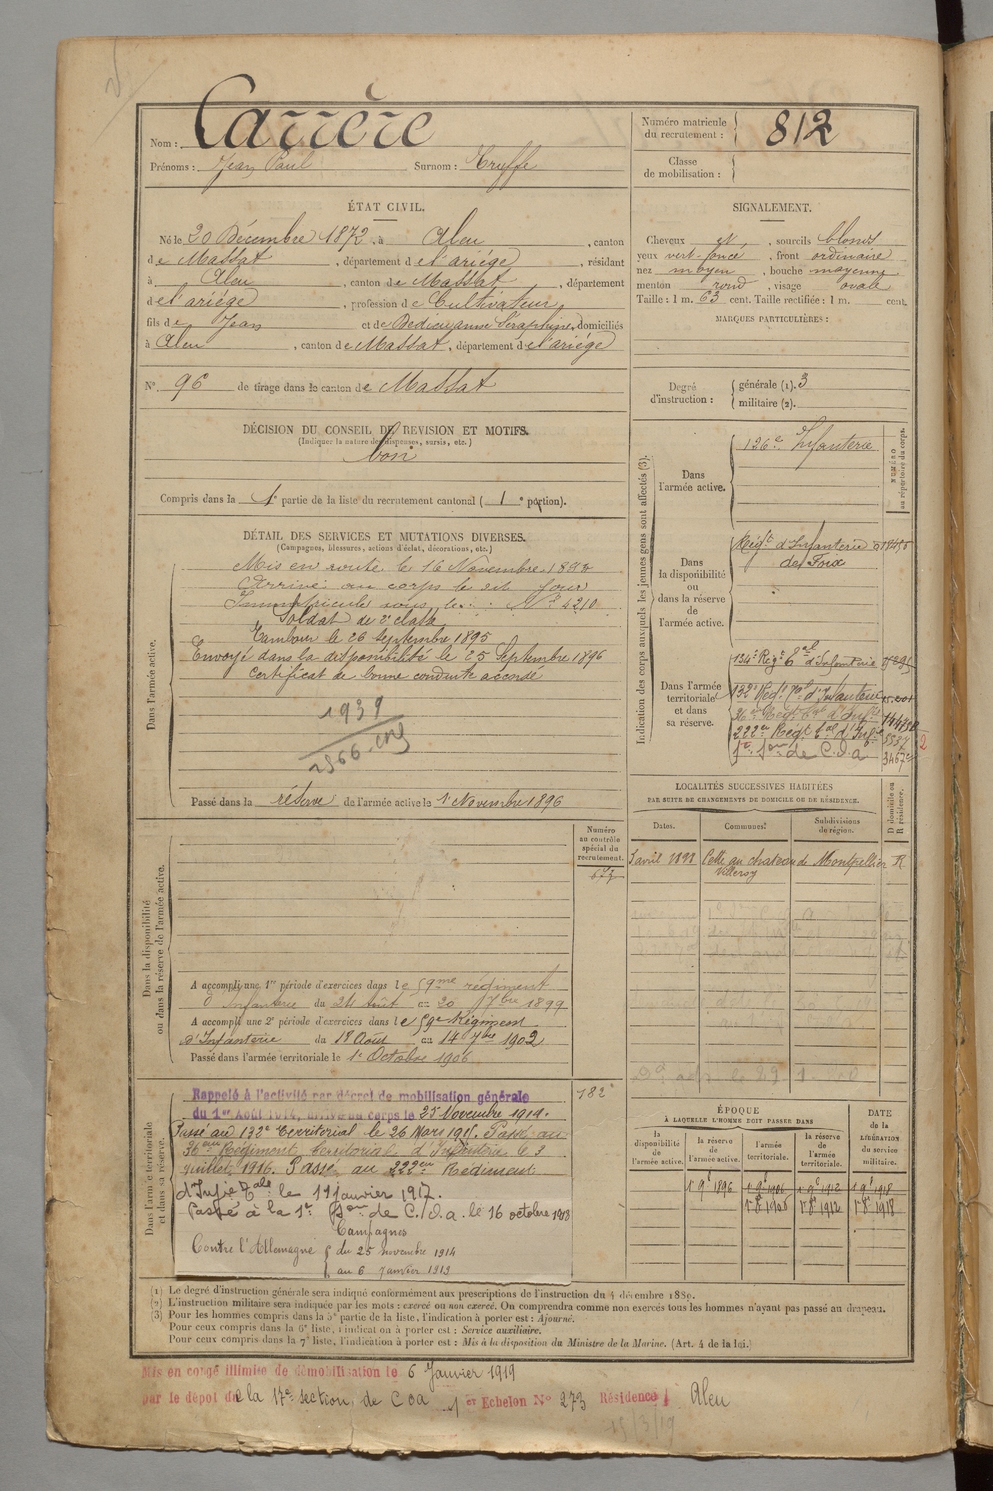 Nom : Carrère
Prénoms : Jean Paul Surnom : Truffe
Numéro matricule du recrutement : 812
Classe de mobilisation :
ÉTAT CIVIL.
Né le 20 Décembre 1872, à Aleu, canton
de Massat, département de l'ariége, résidant
à Aleu, canton de Massat, département
de l'ariége, profession de Cultivateur,
fils de Jean et de Seraphine, domiciliés
à Aleu, canton de Massat, département de l'ariége
N° 96 de tirage dans le canton de Massat
SIGNALEMENT.
Cheveux et, sourcils blonds
yeux vert-foncé, front ordinaire
nez moyen, bouche moyenne
menton rond, visage ovale
Taille : 1 m. 63 cent. Taille rectifiée : 1 m. cent.
MARQUES PARTICULIÈRES :
Degré d'instruction : générale (1). 3
militaire (2).
DÉCISION DU CONSEIL DE REVISION ET MOTIFS.
(Indiquer la nature des dispenses, sursis, etc.)
bon
Compris dans la 1e partie de la liste du recrutement cantonal ( 1e portion).
DÉTAIL DES SERVICES ET MUTATIONS DIVERSES.
(Campagnes, blessures, actions d'éclat, décorations, etc.)
Dans l'armée active.
Mis en route le 16 Novembre 1893
Arrivé au corps le dit jour
Immatriculé sous le : N° 4210
Soldat de 2e classe
Tambour le 26 Septembre 1895
Envoyé dans la disponibilité le 25 Septembre 1896
Certificat de bonne conduite accordé
1939
Passé dans la réserve de l'armée active le 1 Novembre 1896
Indication des corps auxquels les jeunes gens sont affectés (3).
NUMÉRO au répertoire du corps.
Dans l'armée active.
126e Infanterie
Dans la disponibilité ou dans la réserve de l'armée active.
Régt d'Infanterie
de Foix
Dans l'armée territoriale et dans sa réserve.
134e Régt Tal d'Infanterie
132e Regt Tal d'Infanterie
36e Regt Tal d'Infie
222e Régt Tal d'Infie
1e Son de C.O.a
LOCALITÉS SUCCESSIVES HABITÉES
PAR SUITE DE CHANGEMENTS DE DOMICILE OU DE RÉSIDENCE.
Dates. Communes. Subdivisions de région. D domicile ou R résidence.
Cette au chateau de Villeroy Montpellier R.
Numéro au contrôle spécial du recrutement.
Dans la disponibilité ou dans la réserve de l'armée active.
A accompli une 1re période d'exercices dans le 59me régiment
d'Infanterie du 24 Août au 20 7bre 1899
A accompli une 2e période d'exercices dans le 59e Régiment
d'Infanterie du 18 Août au 14 7bre 1902
Passé dans l'armée territoriale le 1e Octobre 1906
Dans l'armée territoriale et dans sa réserve.
Rappelé à l'activité par décret de mobilisation générale
du 1er Août 1914, arrivé au corps le 25 Novembre 1914.
Passé au 132e territorial le 26 Mars 1915. Passé au
36eme Régiment territorial d'Infanterie le 3
juillet 1916. Passé au 222eme Régiment
d'Infie Tale le 11 janvier 1917.
Passé à la 1e Son de C.O.a. le 16 octobre 1918
Campagnes
Contre l'Allemagne du 25 novembre 1914
au 6 Janvier 1919
ÉPOQUE
À LAQUELLE L'HOMME DOIT PASSER DANS
la disponibilité de l'armée active. la réserve de l'armée active. l'armée territoriale. la réserve de l'armée territoriale. DATE de la LIBÉRATION du service militaire.
1 9e 1896 1 9e 1906 1 9e 1912 1 9e 1918
1 8e 1906 1 8e 1912 1 8e 1918
(1) Le degré d'instruction générale sera indiqué conformément aux prescriptions de l'instruction du 4 décembre 1889.
(2) L'instruction militaire sera indiquée par les mots : exercé ou non exercé. On comprendra comme non exercés tous les hommes n'ayant pas passé au drapeau.
(3) Pour les hommes compris dans la 5e partie de la liste, l'indication à porter est : Ajourné.
Pour ceux compris dans la 6e liste, l'indication à porter est : Service auxiliaire.
Pour ceux compris dans la 7e liste, l'indication à porter est : Mis à la disposition du Ministre de la Marine. (Art. 4 de la loi.)
Mis en congé illimité de démobilisation le 6 Janvier 1919
par le dépot de la 17e section de Coa 1er Echelon N° 273 Résidence Aleu